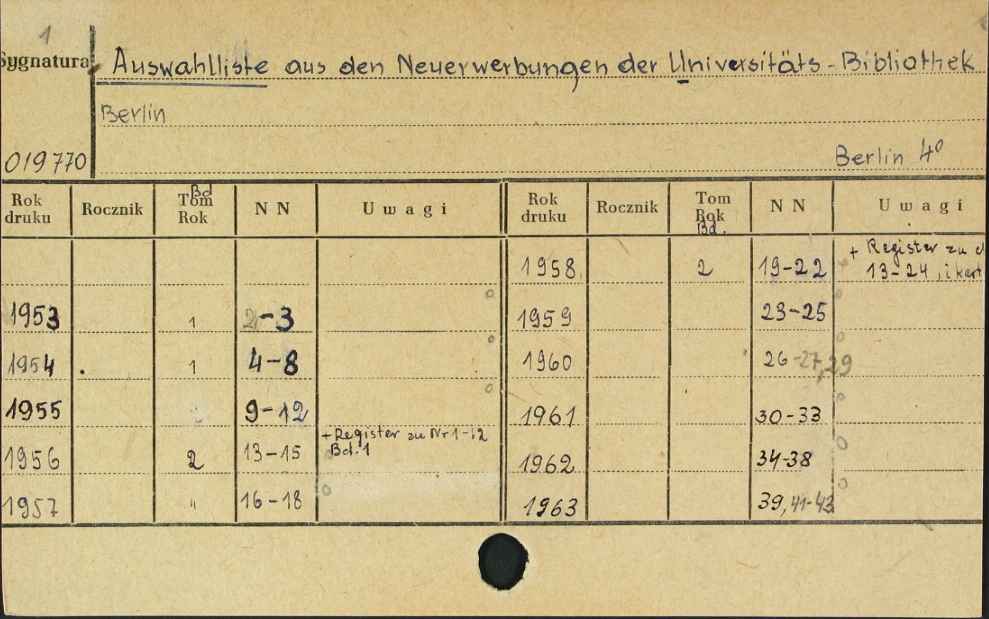 1
Sygnatura Auswahlliste aus den Neuerwerbungen der Universitäts-Bibliothek
Berlin
019770 Berlin 4°
Rok druku Rocznik Bd Tom Rok N N Uwagi Rok druku Rocznik Tom Rok Bd. N N Uwagi
1958 2 19-22 + Register zu
13-24, i kart
1953 1 2-3 1959 23-25
1954 1 4-8 1960 26-27,29
1955 9-12 1961 30-33
1956 2 13-15 +Register zu Nr 1-12 Bd.1 1962 34-38
1957 " 16-18 1963 39,41-43